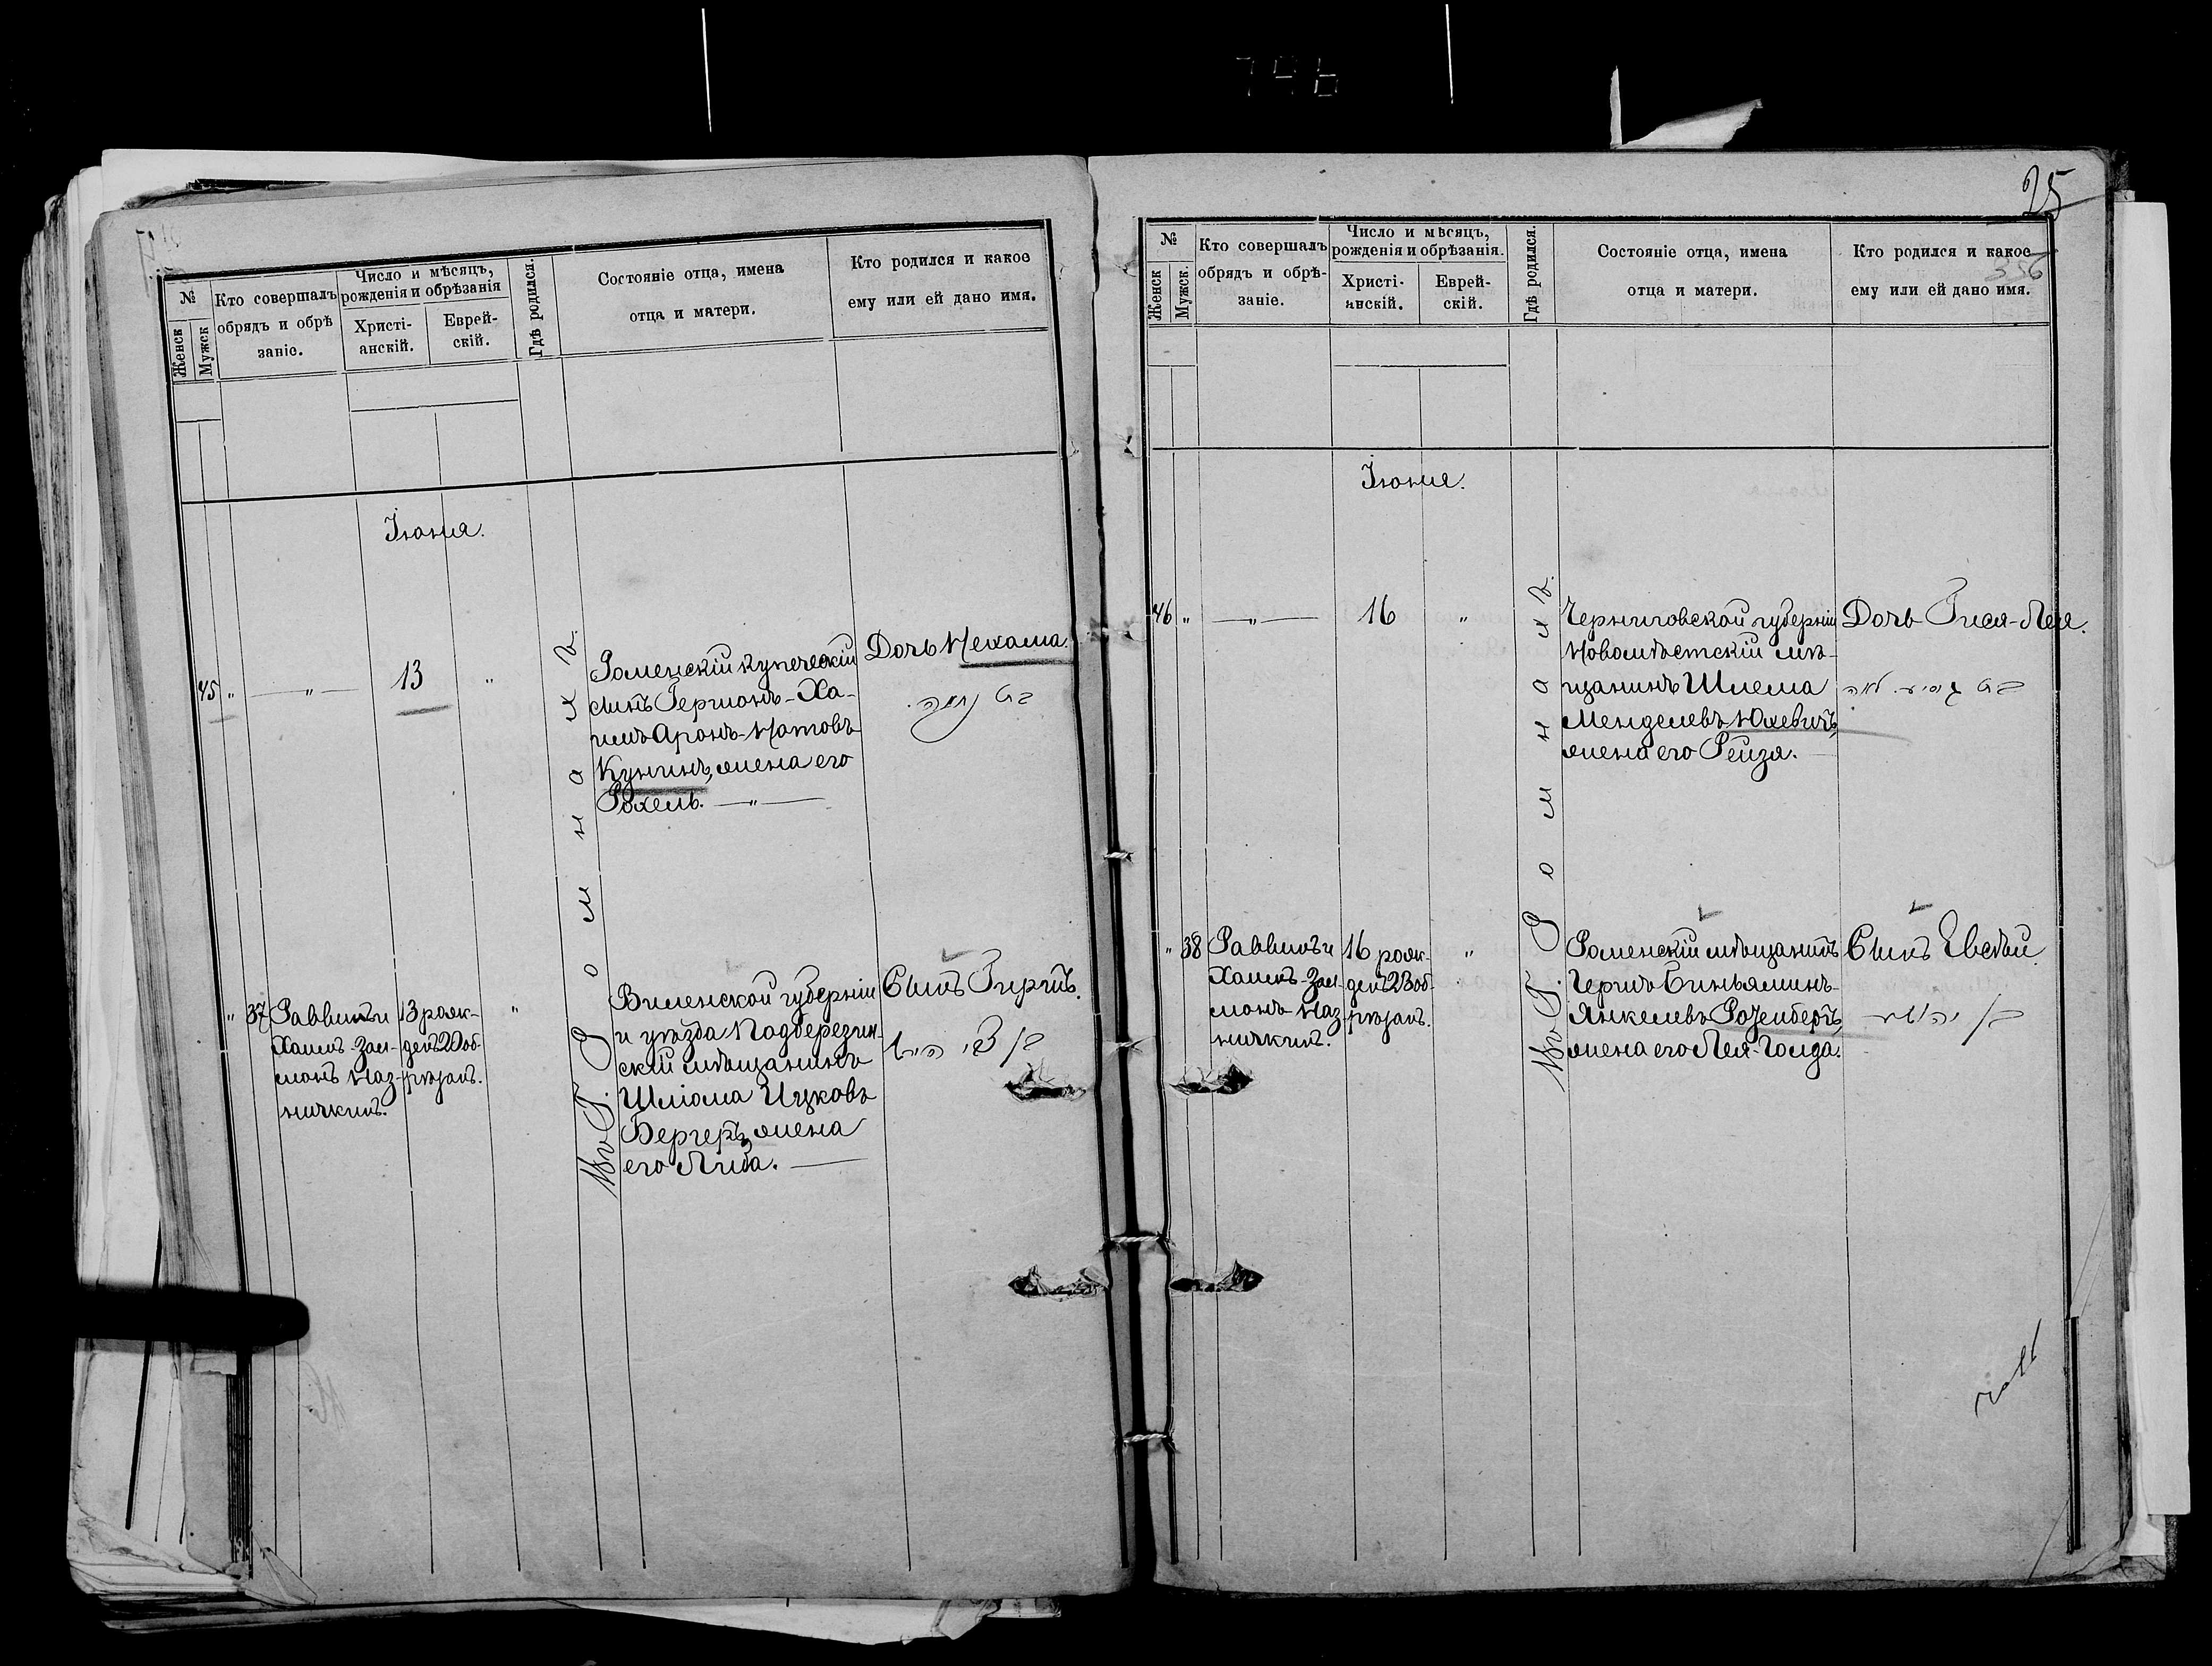 №
Женск
Мужск
Кто совершалъ
обрядъ и обрѣ
заніе.
Число и мѣсяцъ,
рожденія и обрѣзанія
Христі-
анскій.
Еврей-
скій.
Гдѣ родился.
Состояніе отца, имена
отца и матери.
Кто родился и какое
ему или ей дано имя.
Іюня.
45 " — " — 13 "
Роменскій купеческій
сынъ Гершонъ-Ха-
имъ Аронъ-Нотовъ
Кунинъ, жена его
Рохель. — " —
Дочь Нехама.
" 37
Раввинъ и
Хаимъ-Зал-
монъ Наз-
13 рож-
денъ 20 об-
рѣзанъ.
"
Въ Г. Ромнахъ.
Виленской губерніи
и уѣзда Подберезин-
скій мѣщанинъ
Шліома Ицковъ
Бергеръ, жена
его Люба. —
Сынъ Гиршъ.
בן צבי הירש
25
№
Женск
Мужск.
Кто совершалъ
обрядъ и обрѣ-
заніе.
Число и мѣсяцъ,
рожденія и обрѣзанія.
Христі-
анскій.
Еврей-
скій.
Гдѣ родился.
Состояніе отца, имена
отца и матери.
Кто родился и какое
ему или ей дано имя.
Іюня.
46 " — " — 16 "
Черниговской губерніи
Новомѣстскій мѣ-
щанинъ Шлема
Менделевъ Юхевичъ,
жена его Рейза. —
Дочь Гися-Лея.
" 38
Раввинъ и
Хаимъ-Зал-
монъ Наз-
16 рож-
денъ 23 об-
рѣзанъ.
"
Въ Г. Ромнахъ.
Роменскій мѣщанинъ
Гершъ Биньяминъ-
Янкелевъ Розенбергъ,
жена его Лея-Голда.
Сынъ Евсѣй.